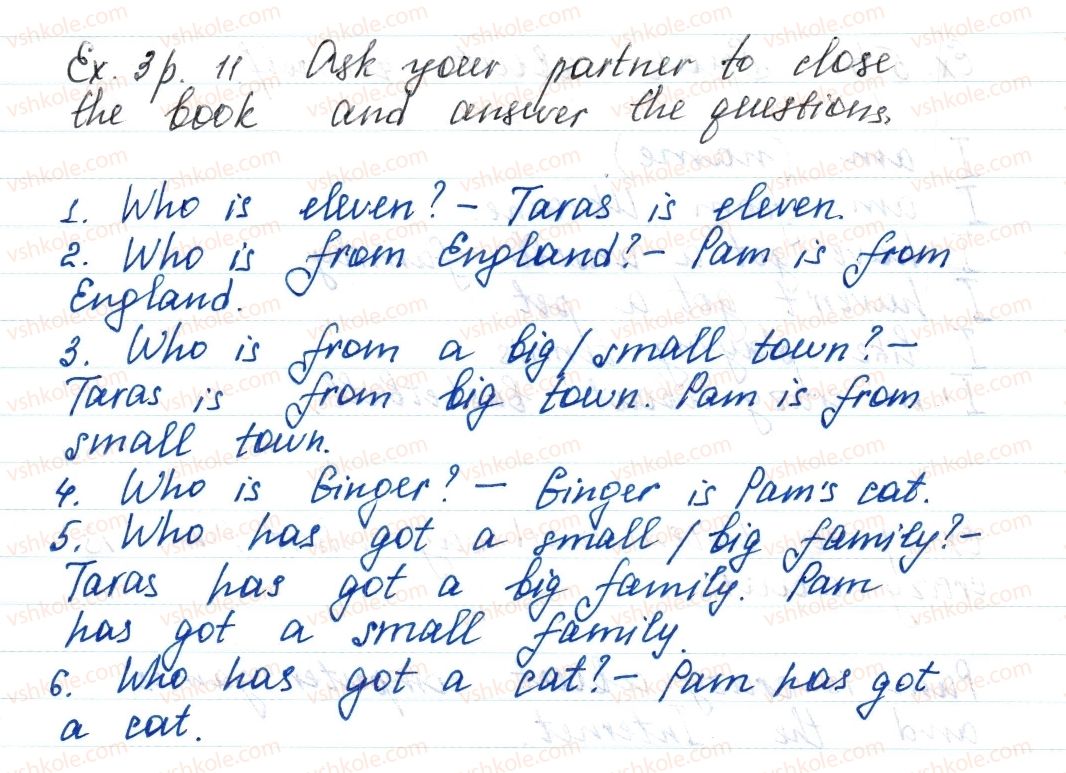 Ex. 3 p. 11 Ask your partner to close
the book and answer the questions.
1. Who is eleven? – Taras is eleven.
2. Who is from England? – Pam is from
England.
3. Who is from a big/small town? –
Taras is from big town. Pam is from
small town.
4. Who is Ginger? – Ginger is Pam's cat.
5. Who has got a small/big family? –
Taras has got a big family. Pam
has got a small family.
6. Who has got a cat? – Pam has got
a cat.
vshkole.com